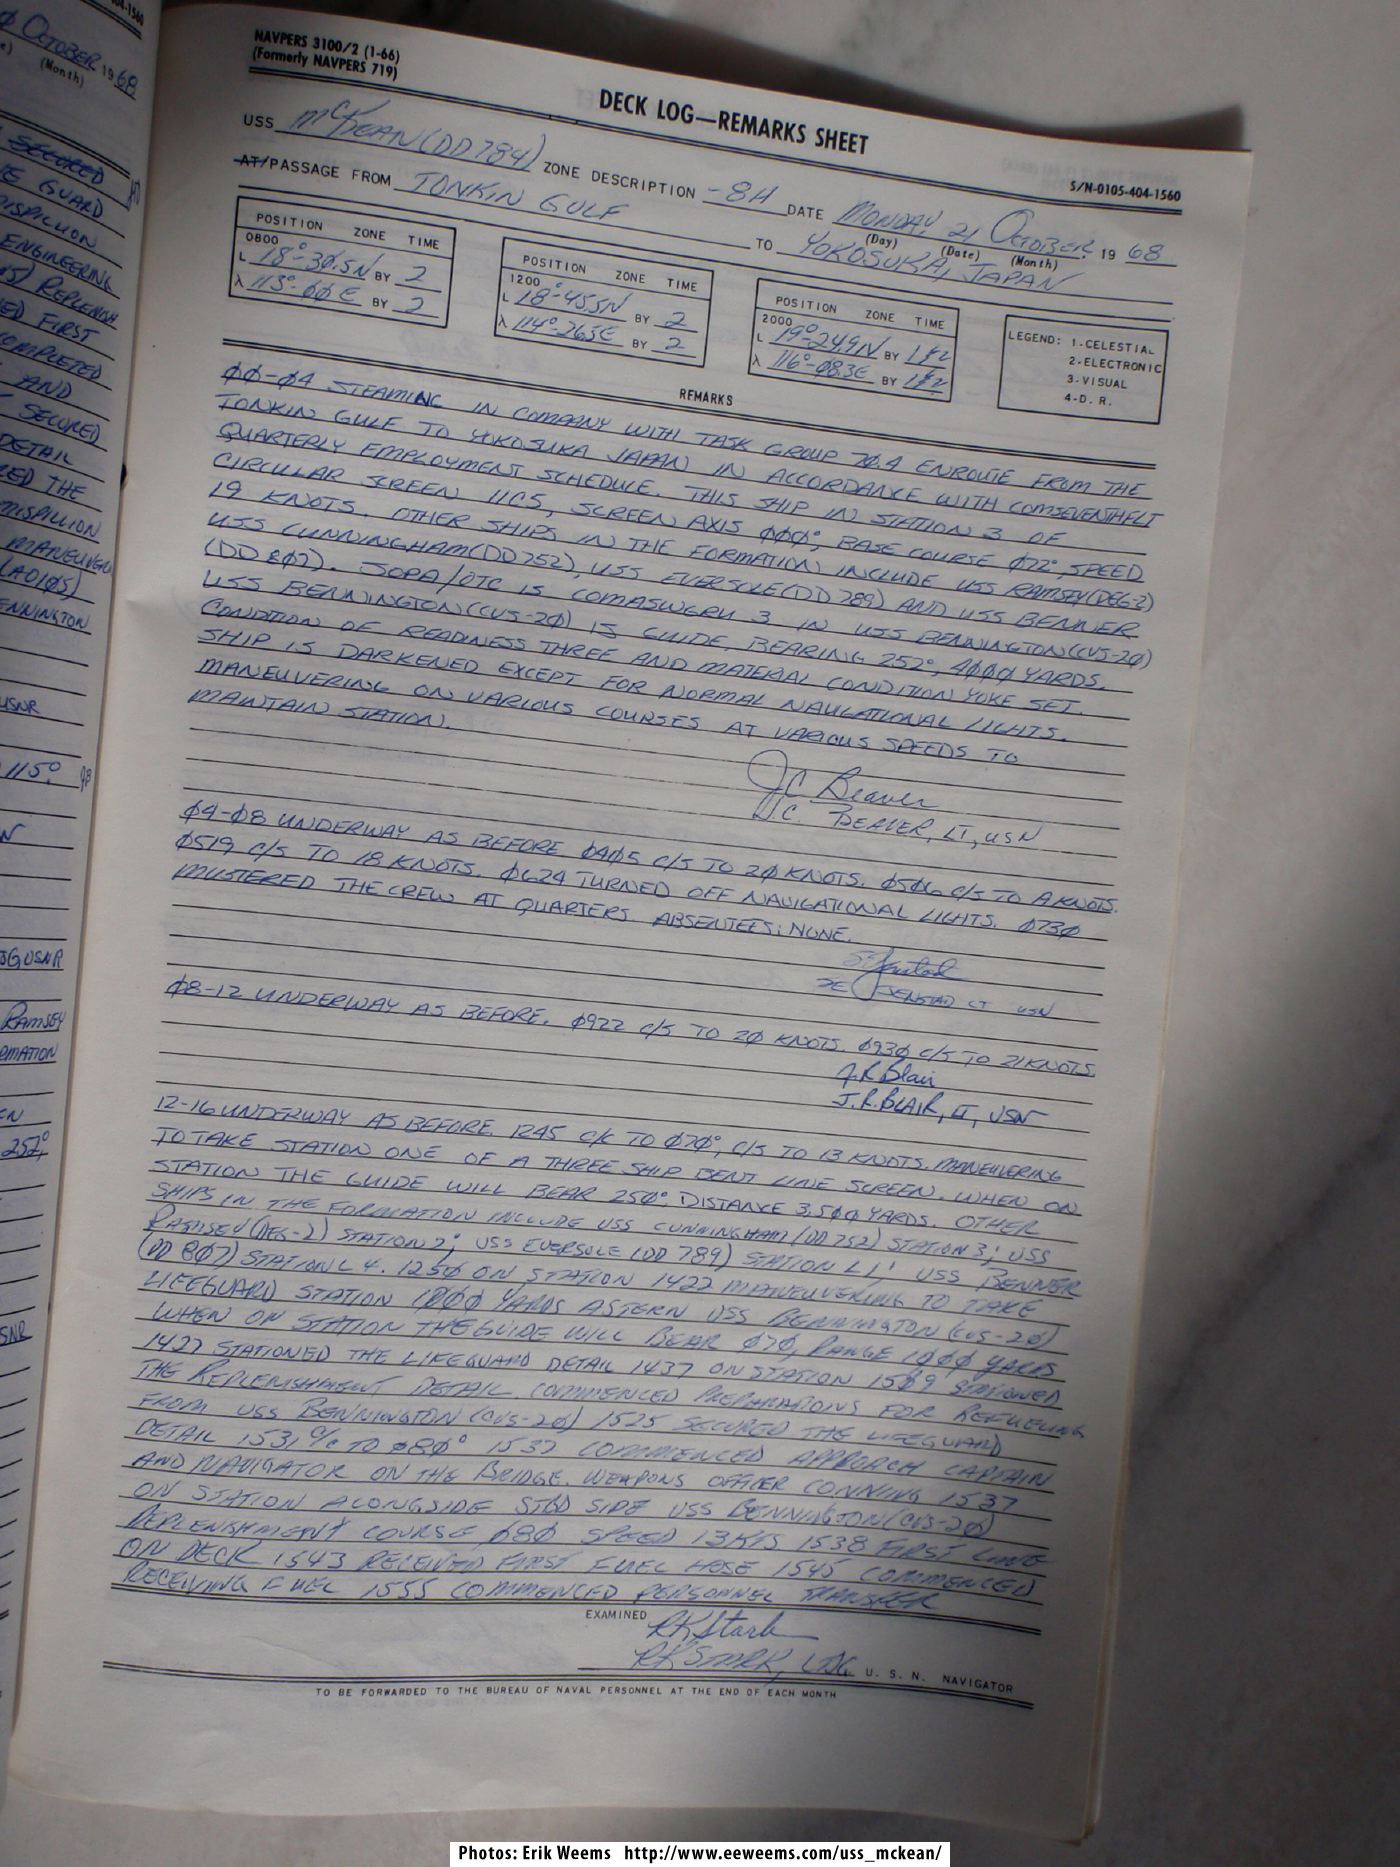 404-1560
OCTOBER 1968
(Month)
SECURED
E GUARD
ISPILLION
ENGINEERING
REPLENISH
ED FIRST
COMPLETED
AND
SECURED
DETAIL
ED THE
MISPILLION
MANEUVERING
(AO105)
ENNINGTON
USNR
115°
JG USNR
RAMSEY
RMATION
EN
252°,
SNR
NAVPERS 3100/2 (1-66)
(Formerly NAVPERS 719)
DECK LOG—REMARKS SHEET
S/N-0105-404-1560
USS McKEAN (DD784) ZONE DESCRIPTION -8H DATE MONDAY 21 OCTOBER 19 68
(Day) (Date) (Month)
AT/PASSAGE FROM TONKIN GULF TO YOKOSUKA, JAPAN
POSITION ZONE TIME
0800
L 18°-30.5N BY 2
λ 113°-00E BY 2
POSITION ZONE TIME
1200
L 18°-45.5N BY 2
λ 114°-26.5E BY 2
POSITION ZONE TIME
2000
L 19°-24.9N BY 1&2
λ 116°-08.3E BY 1&2
LEGEND: 1-CELESTIAL
2-ELECTRONIC
3-VISUAL
4-D. R.
REMARKS
00-04 STEAMING IN COMPANY WITH TASK GROUP 70.4 ENROUTE FROM THE
TONKIN GULF TO YOKOSUKA JAPAN IN ACCORDANCE WITH COMSEVENTHFLT
QUARTERLY EMPLOYMENT SCHEDULE. THIS SHIP IN STATION 3 OF
CIRCULAR SCREEN 11CS, SCREEN AXIS 000°, BASE COURSE 072°, SPEED
19 KNOTS. OTHER SHIPS IN THE FORMATION INCLUDE USS RAMSEY (DEG-2)
USS CUNNINGHAM (DD752), USS EVERSOLE (DD789) AND USS BENNER
(DD 807). SOPA/OTC IS COMASWGRU 3 IN USS BENNINGTON (CVS-20)
USS BENNINGTON (CVS-20) IS GUIDE, BEARING 252°, 4000 YARDS.
CONDITION OF READINESS THREE AND MATERIAL CONDITION YOKE SET.
SHIP IS DARKENED EXCEPT FOR NORMAL NAVIGATIONAL LIGHTS.
MANEUVERING ON VARIOUS COURSES AT VARIOUS SPEEDS TO
MAINTAIN STATION.
JC Beaver
J.C. BEAVER, LT, USN
04-08 UNDERWAY AS BEFORE 0405 C/S TO 20 KNOTS. 0506 C/S TO KNOTS.
0519 C/S TO 18 KNOTS. 0624 TURNED OFF NAVIGATIONAL LIGHTS. 0730
MUSTERED THE CREW AT QUARTERS. ABSENTEES: NONE.
LT USN
08-12 UNDERWAY AS BEFORE. 0922 C/S TO 20 KNOTS. 0930 C/S TO 21 KNOTS.
J.R. Blair
J.R. BLAIR, LT, USN
12-16 UNDERWAY AS BEFORE. 1245 C/C TO 070°, C/S TO 13 KNOTS. MANEUVERING
TO TAKE STATION ONE OF A THREE SHIP BENT LINE SCREEN. WHEN ON
STATION THE GUIDE WILL BEAR 250°, DISTANCE 3,500 YARDS. OTHER
SHIPS IN THE FORMATION INCLUDE USS CUNNINGHAM (DD 752) STATION 3; USS
RAMSEY (DEG-2) STATION 2; USS EVERSOLE (DD 789) STATION L1; USS BENNER
(DD 807) STATION L4. 1250 ON STATION 1422 MANEUVERING TO TAKE
LIFEGUARD STATION 1000 YARDS ASTERN USS BENNINGTON (CVS-20)
WHEN ON STATION THE GUIDE WILL BEAR 070, RANGE 1000 YARDS
1427 STATIONED THE LIFEGUARD DETAIL 1437 ON STATION 1509 STATIONED
THE REPLENISHMENT DETAIL. COMMENCED PREPARATIONS FOR REFUELING
FROM USS BENNINGTON (CVS-20) 1525 SECURED THE LIFEGUARD
DETAIL 1531 C/C TO 080° 1532 COMMENCED APPROACH CAPTAIN
AND NAVIGATOR ON THE BRIDGE. WEAPONS OFFICER CONNING 1537
ON STATION ALONGSIDE STBD SIDE USS BENNINGTON (CVS-20)
REPLENISHMENT COURSE 080 SPEED 13 KTS 1538 FIRST LINE
ON DECK 1543 RECEIVED FIRST FUEL HOSE 1545 COMMENCED
RECEIVING FUEL 1555 COMMENCED PERSONNEL TRANSFER
EXAMINED
RK Stark
RK STARK, LTJG U. S. N. NAVIGATOR
TO BE FORWARDED TO THE BUREAU OF NAVAL PERSONNEL AT THE END OF EACH MONTH
Photos: Erik Weems http://www.eeweems.com/uss_mckean/